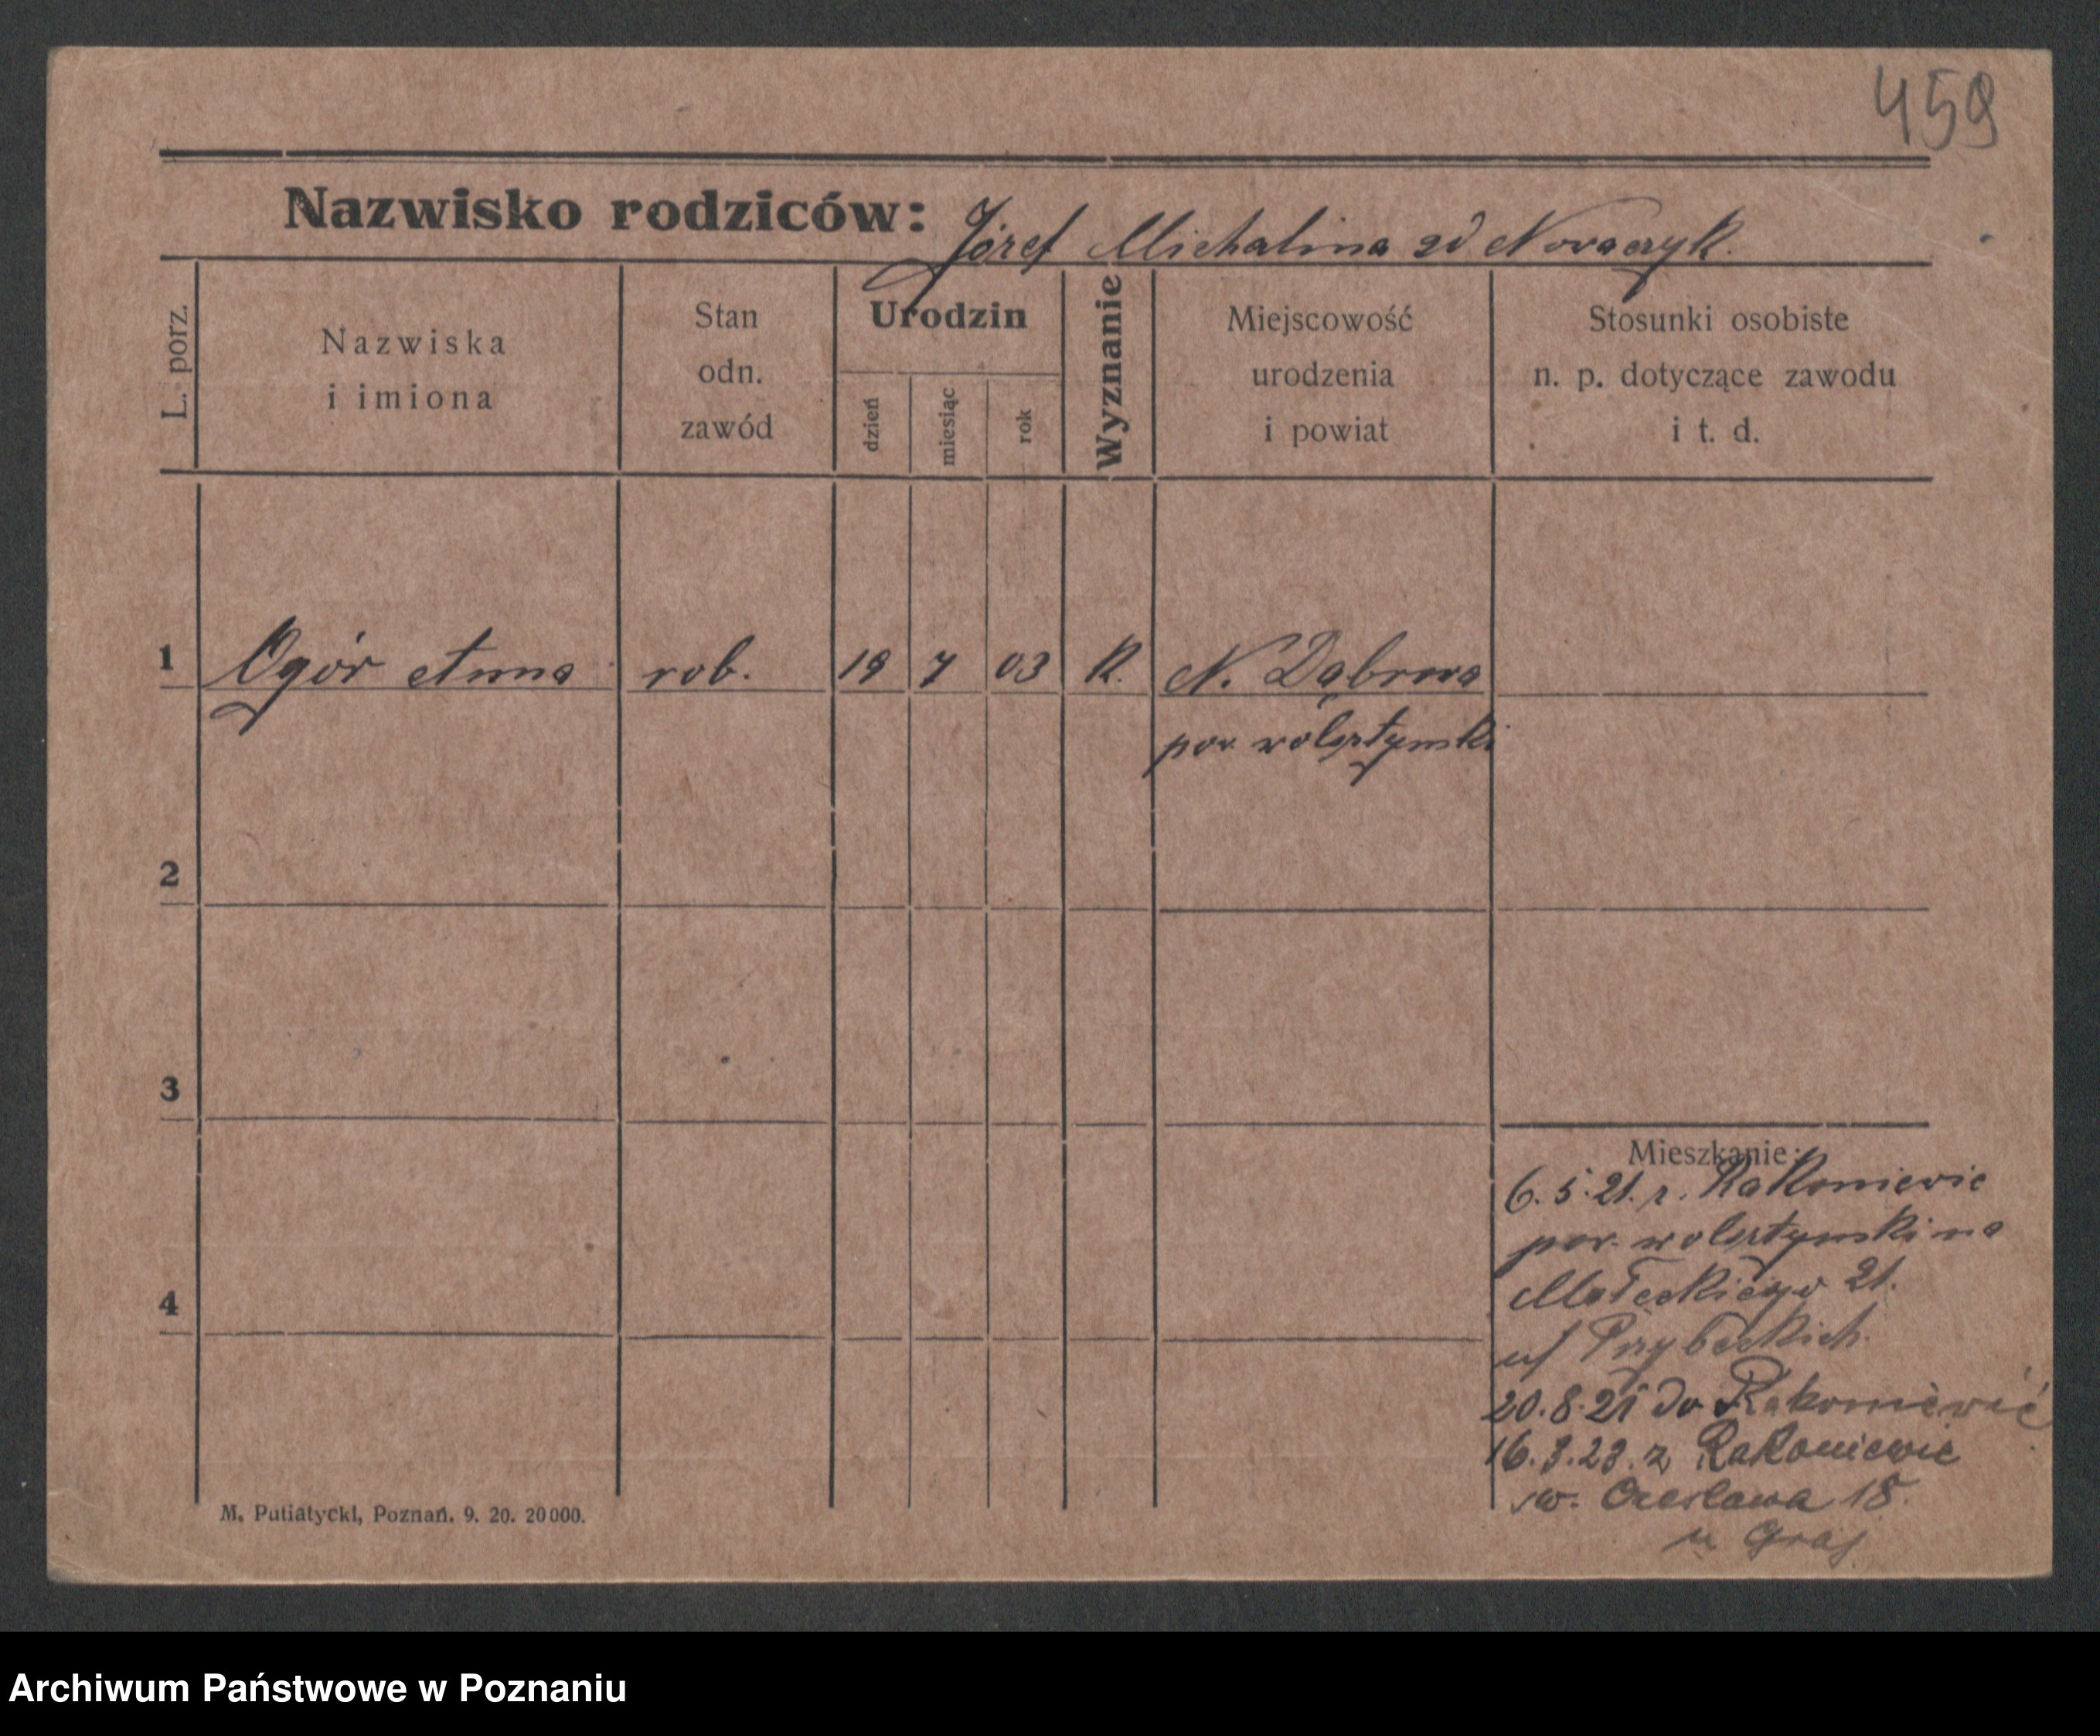 459
Nazwisko rodziców: Józef Michalina zd Nowaczyk.
L. porz.
Nazwiska
i imiona
Stan
odn.
zawód
Urodzin
dzień
miesiąc
rok
Wyznanie
Miejscowość
urodzenia
i powiat
Stosunki osobiste
n. p. dotyczące zawodu
i t. d.
1 Ogór Anna rob. 19 7 03 K. N. Dąbrowa
pow. wolsztyński
2
3
4
Mieszkanie:
6. 5. 21. z. Rakoniewic
pow. wolsztyński na
Małeckiego 21.
u/ Przybeckich.
20. 8. 21 do Rakoniewić
16. 3. 23. z Rakoniewic
św. Czesława 18.
u
M. Putiatycki, Poznań. 9. 20. 20 000.
Archiwum Państwowe w Poznaniu